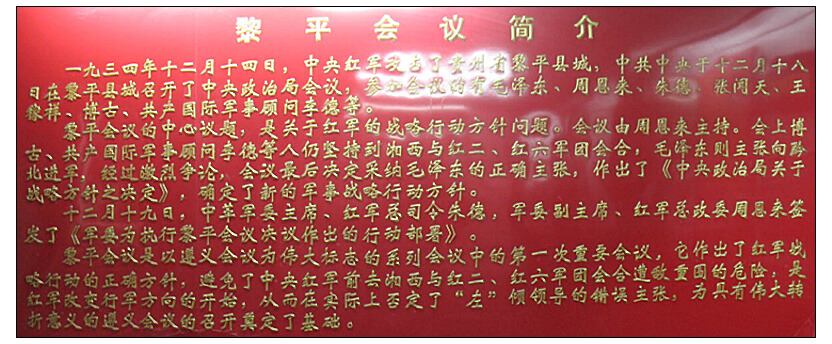 黎平会议简介
一九三四年十二月十四日，中央红军攻占了贵州省黎平县城，中共中央于十二月十八
日在黎平县城召开了中央政治局会议，参加会议的有毛泽东、周恩来、朱德、张闻天、王
稼祥、博古、共产国际军事顾问李德等。
黎平会议的中心议题，是关于红军的战略行动方针问题。会议由周恩来主持。会上博
古、共产国际军事顾问李德等人仍坚持到湘西与红二、红六军团会合，毛泽东则主张向黔
北进军，经过激烈争论，会议最后决定采纳毛泽东的正确主张，作出了《中央政治局关于
战略方针之决定》，确定了新的军事战略行动方针。
十二月十九日，中革军委主席、红军总司令朱德，军委副主席、红军总政委周恩来签
发了《军委为执行黎平会议决议作出的行动部署》。
黎平会议是以遵义会议为伟大标志的系列会议中的第一次重要会议，它作出了红军战
略行动的正确方针，避免了中央红军前去湘西与红二、红六军团会合遭敌重围的危险，是
红军改变行军方向的开始，从而在实际上否定了“左”倾领导的错误主张，为具有伟大转
折意义的遵义会议的召开奠定了基础。